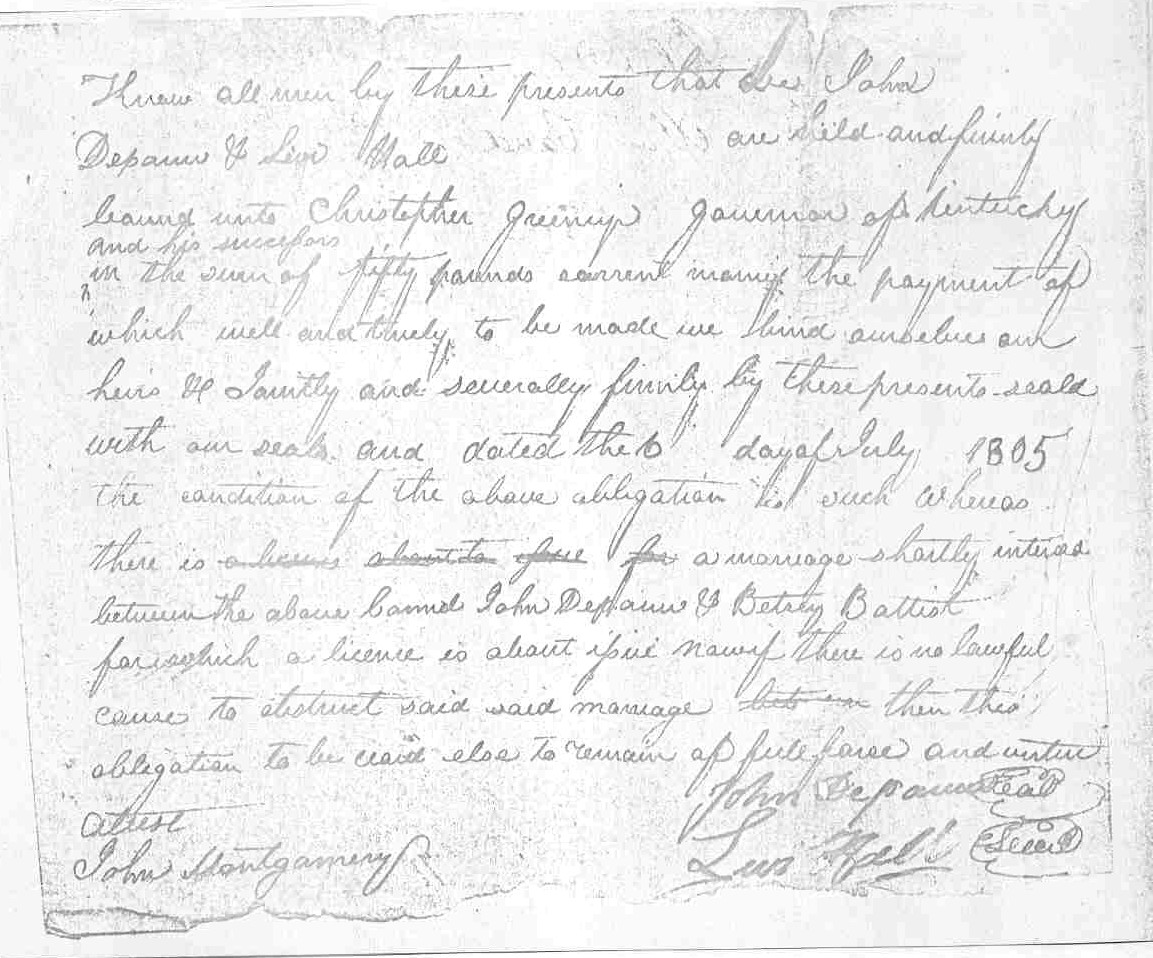 Know all men by these presents that we John
Depauw & Levi Hall are held and firmly
bound unto Christopher Greenup Governor of Kentucky
and his successors
in the sum of fifty pounds current money the payment of
which well and truly to be made we bind ourselves our
heirs & Jointly and severally firmly by these presents seald
with our seals and dated the 6 day of July 1805
the condition of the above obligation is such whereas
there is a licens about to issue for a marriage shortly intended
between the above bound John Depauw & Betsey Battist
for which a licence is about issue now if there is no lawful
cause to obstruct said said marriage then this
obligation to be void else to remain of full force and virtue
John Depauw Seal
attest
Levi Hall Seal
John Montgomery